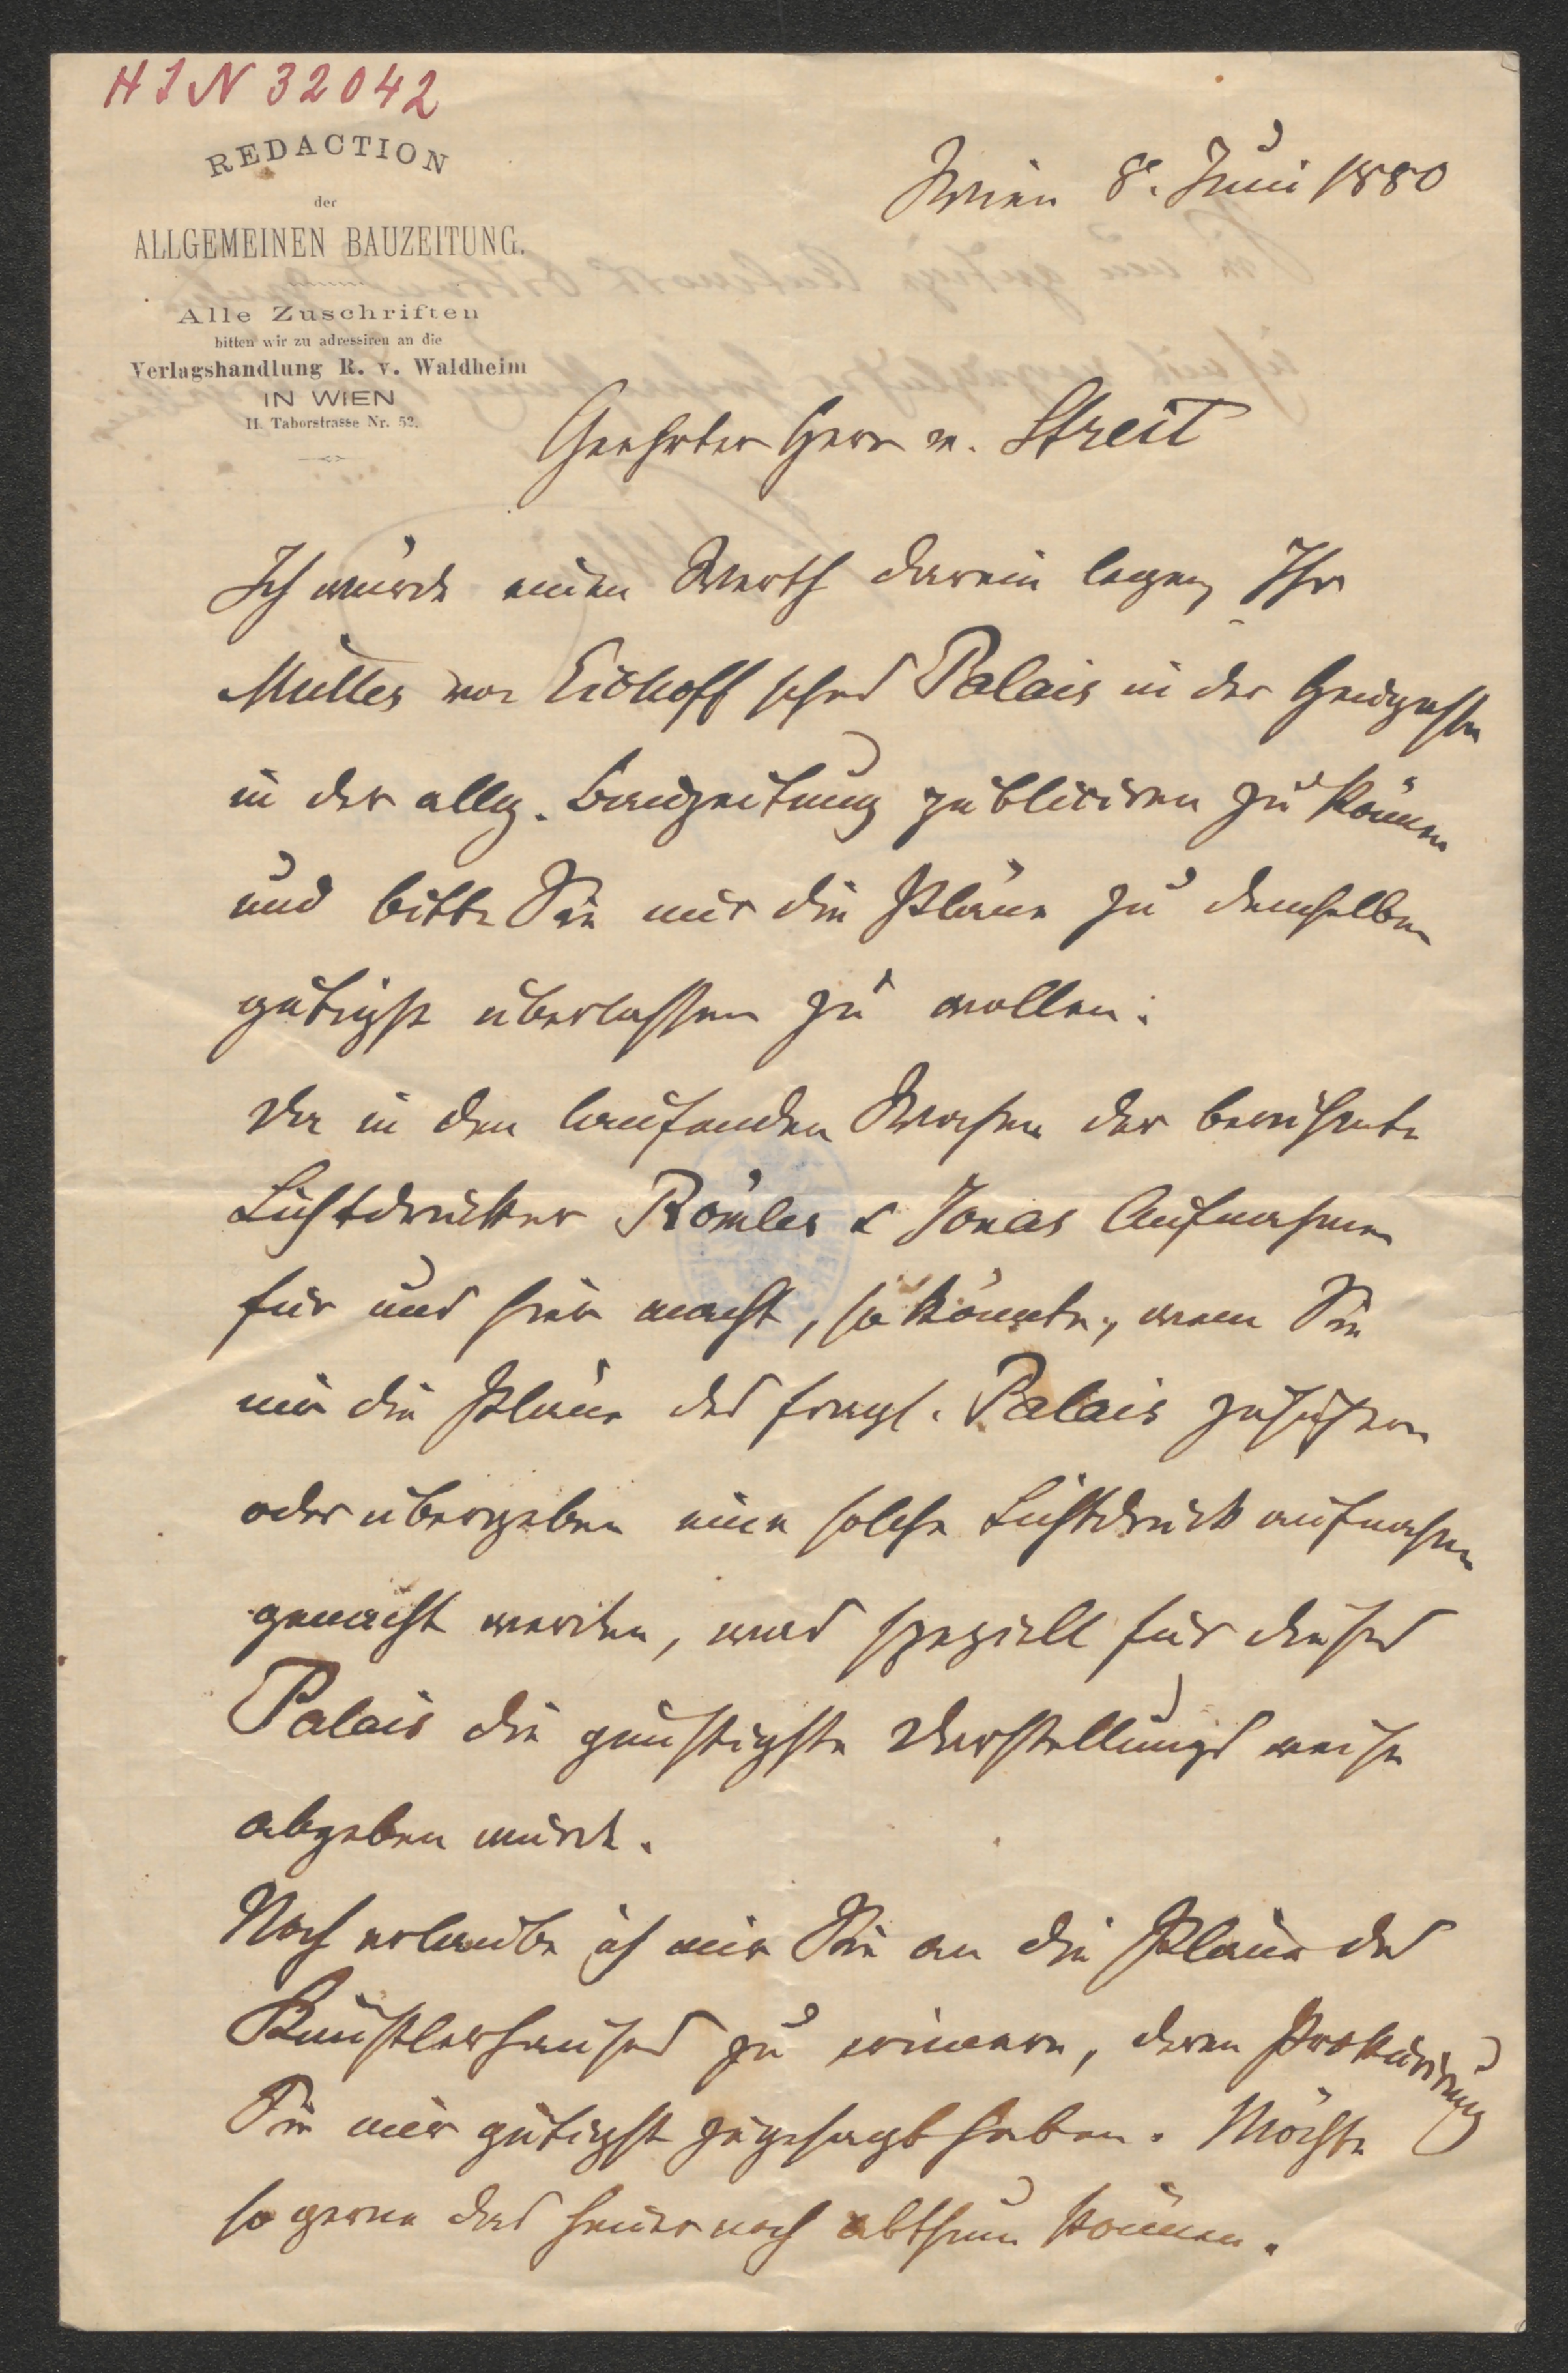 HIN 32042
REDACTION
der
ALLGEMEINEN BAUZEITUNG.
Alle Zuschriften
bitten wir zu adressiren an die
Verlagshandlung R. v. Waldheim
IN WIEN
II. Taborstrasse Nr. 52.
Wien 8. Juni 1880
Geehrter Herr v. Streit
Ich würde einen Werth darein legen, Ihr
Müller von Eichhoff'sches Palais in der
in der allg. Bauzeitung publiciren zu können
und bitte Sie mir die Pläne zu demselben
gütigst überlassen zu wollen.
Da in den laufenden Wochen der berühmte
Lichtdrucker Römler & Jonas Aufnahmen
für uns hier macht, so könnte, wenn Sie
mir die Pläne des fragl. Palais zusichern
oder übergeben eine solche Lichtdruckaufnahme
gemacht werden, was speziell für dieses
Palais die günstigste Darstellungsweise
abgeben würde.
Noch erlaube ich mir Sie an die Pläne des
Künstlerhauses zu erinnern, deren Prokurirung
Sie mir gütigst zugesagt haben. Möchte
so gerne das heuer noch abthun können.